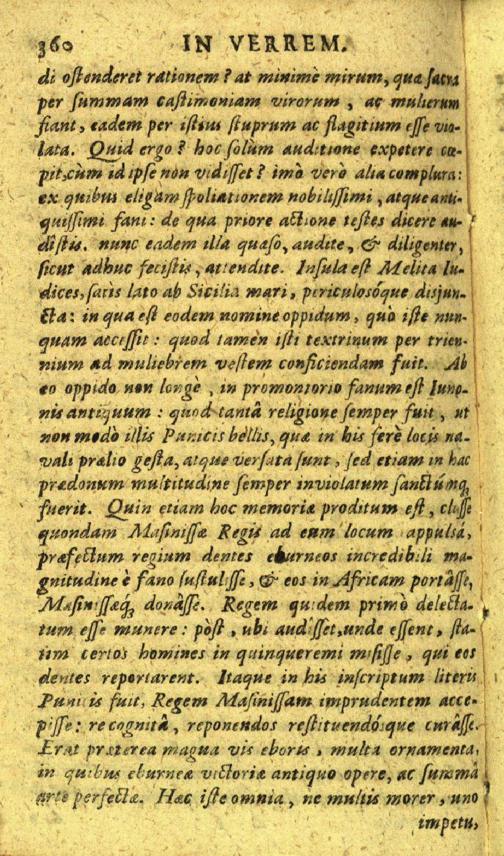 360 IN VERREM.
di ostenderet rationem? at minimè mirum, quæ sacra
per summam castimoniam virorum, ac mulierum
fiant, eadem per istius stuprum ac flagitium esse vio-
lata. Quid ergo? hoc solùm auditione expetere cœ-
pit, cùm id ipse non vidisset? imò verò alia complura:
ex quibus eligam spoliationem nobilissimi, atque anti-
quissimi fani: de qua priore actione testes dicere au-
distis. nunc eadem illa quæso, audite, & diligenter,
sicut adhuc fecistis, attendite. Insula est Melita Iu-
dices, satis lato ab Sicilia mari, periculosóque disjun-
cta: in qua est eodem nomine oppidum, quò iste nun-
quam accessit: quod tamen isti textrinum per trien-
nium ad muliebrem vestem conficiendam fuit. Ab
eo oppido non longè, in promontorio fanum est Iuno-
nis antiquum: quod tantâ religione semper fuit, ut
non modò illis Punicis bellis, quæ in his ferè locis na-
vali prælio gesta, atque versata sunt, sed etiam in hac
prædonum multitudine semper inviolatum sanctúmq;
fuerit. Quin etiam hoc memoriæ proditum est, classe
quondam Masinissæ Regis ad eum locum appulsâ,
præfectum regium dentes eburneos incredibili ma-
gnitudine è fano sustulisse, & eos in Africam portâsse,
Masinissæq; donâsse. Regem quidem primò delecta-
tum esse munere: pòst, ubi audîsset, unde essent, sta-
tim certos homines in quinqueremi misisse, qui eos
dentes reportarent. Itaque in his inscriptum literis
Punicis fuit, Regem Masinissam imprudentem acce-
pisse: re cognitâ, reponendos restituendósque curâsse.
Erat præterea magna vis eboris, multa ornamenta,
in quibus eburneæ victoriæ antiquo opere, ac summâ
arte perfectæ. Hæc iste omnia, ne multis morer, uno
impetu,